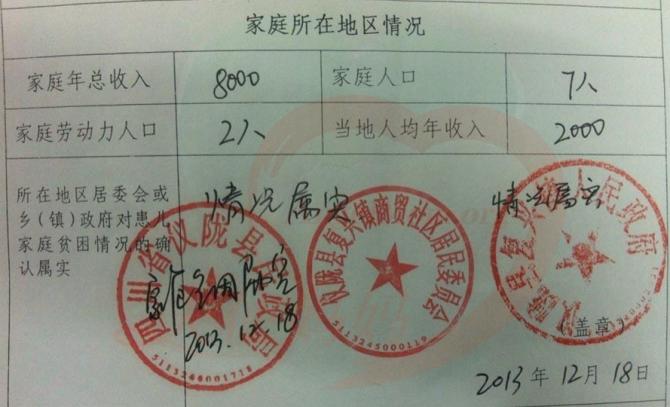 家庭所在地区情况
家庭年总收入 8000 家庭人口 7人
家庭劳动力人口 2人 当地人均年收入 2000
所在地区居委会或
乡（镇）政府对患儿
家庭贫困情况的确
认属实
情况属实
情况属实
四川省仪陇县
家庭
2013.12.18
5113246001718
仪陇县复兴镇商贸社区居民委员会
5113245000119
仪陇县复兴镇人民政府
（盖章）
2013年12月18日